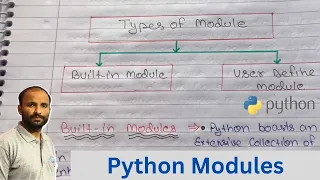 Types of Module
Built-in Module
User Define
module
python
Built-in Modules ⇒ • Python boasts an
Extensive Collection of
Python Modules